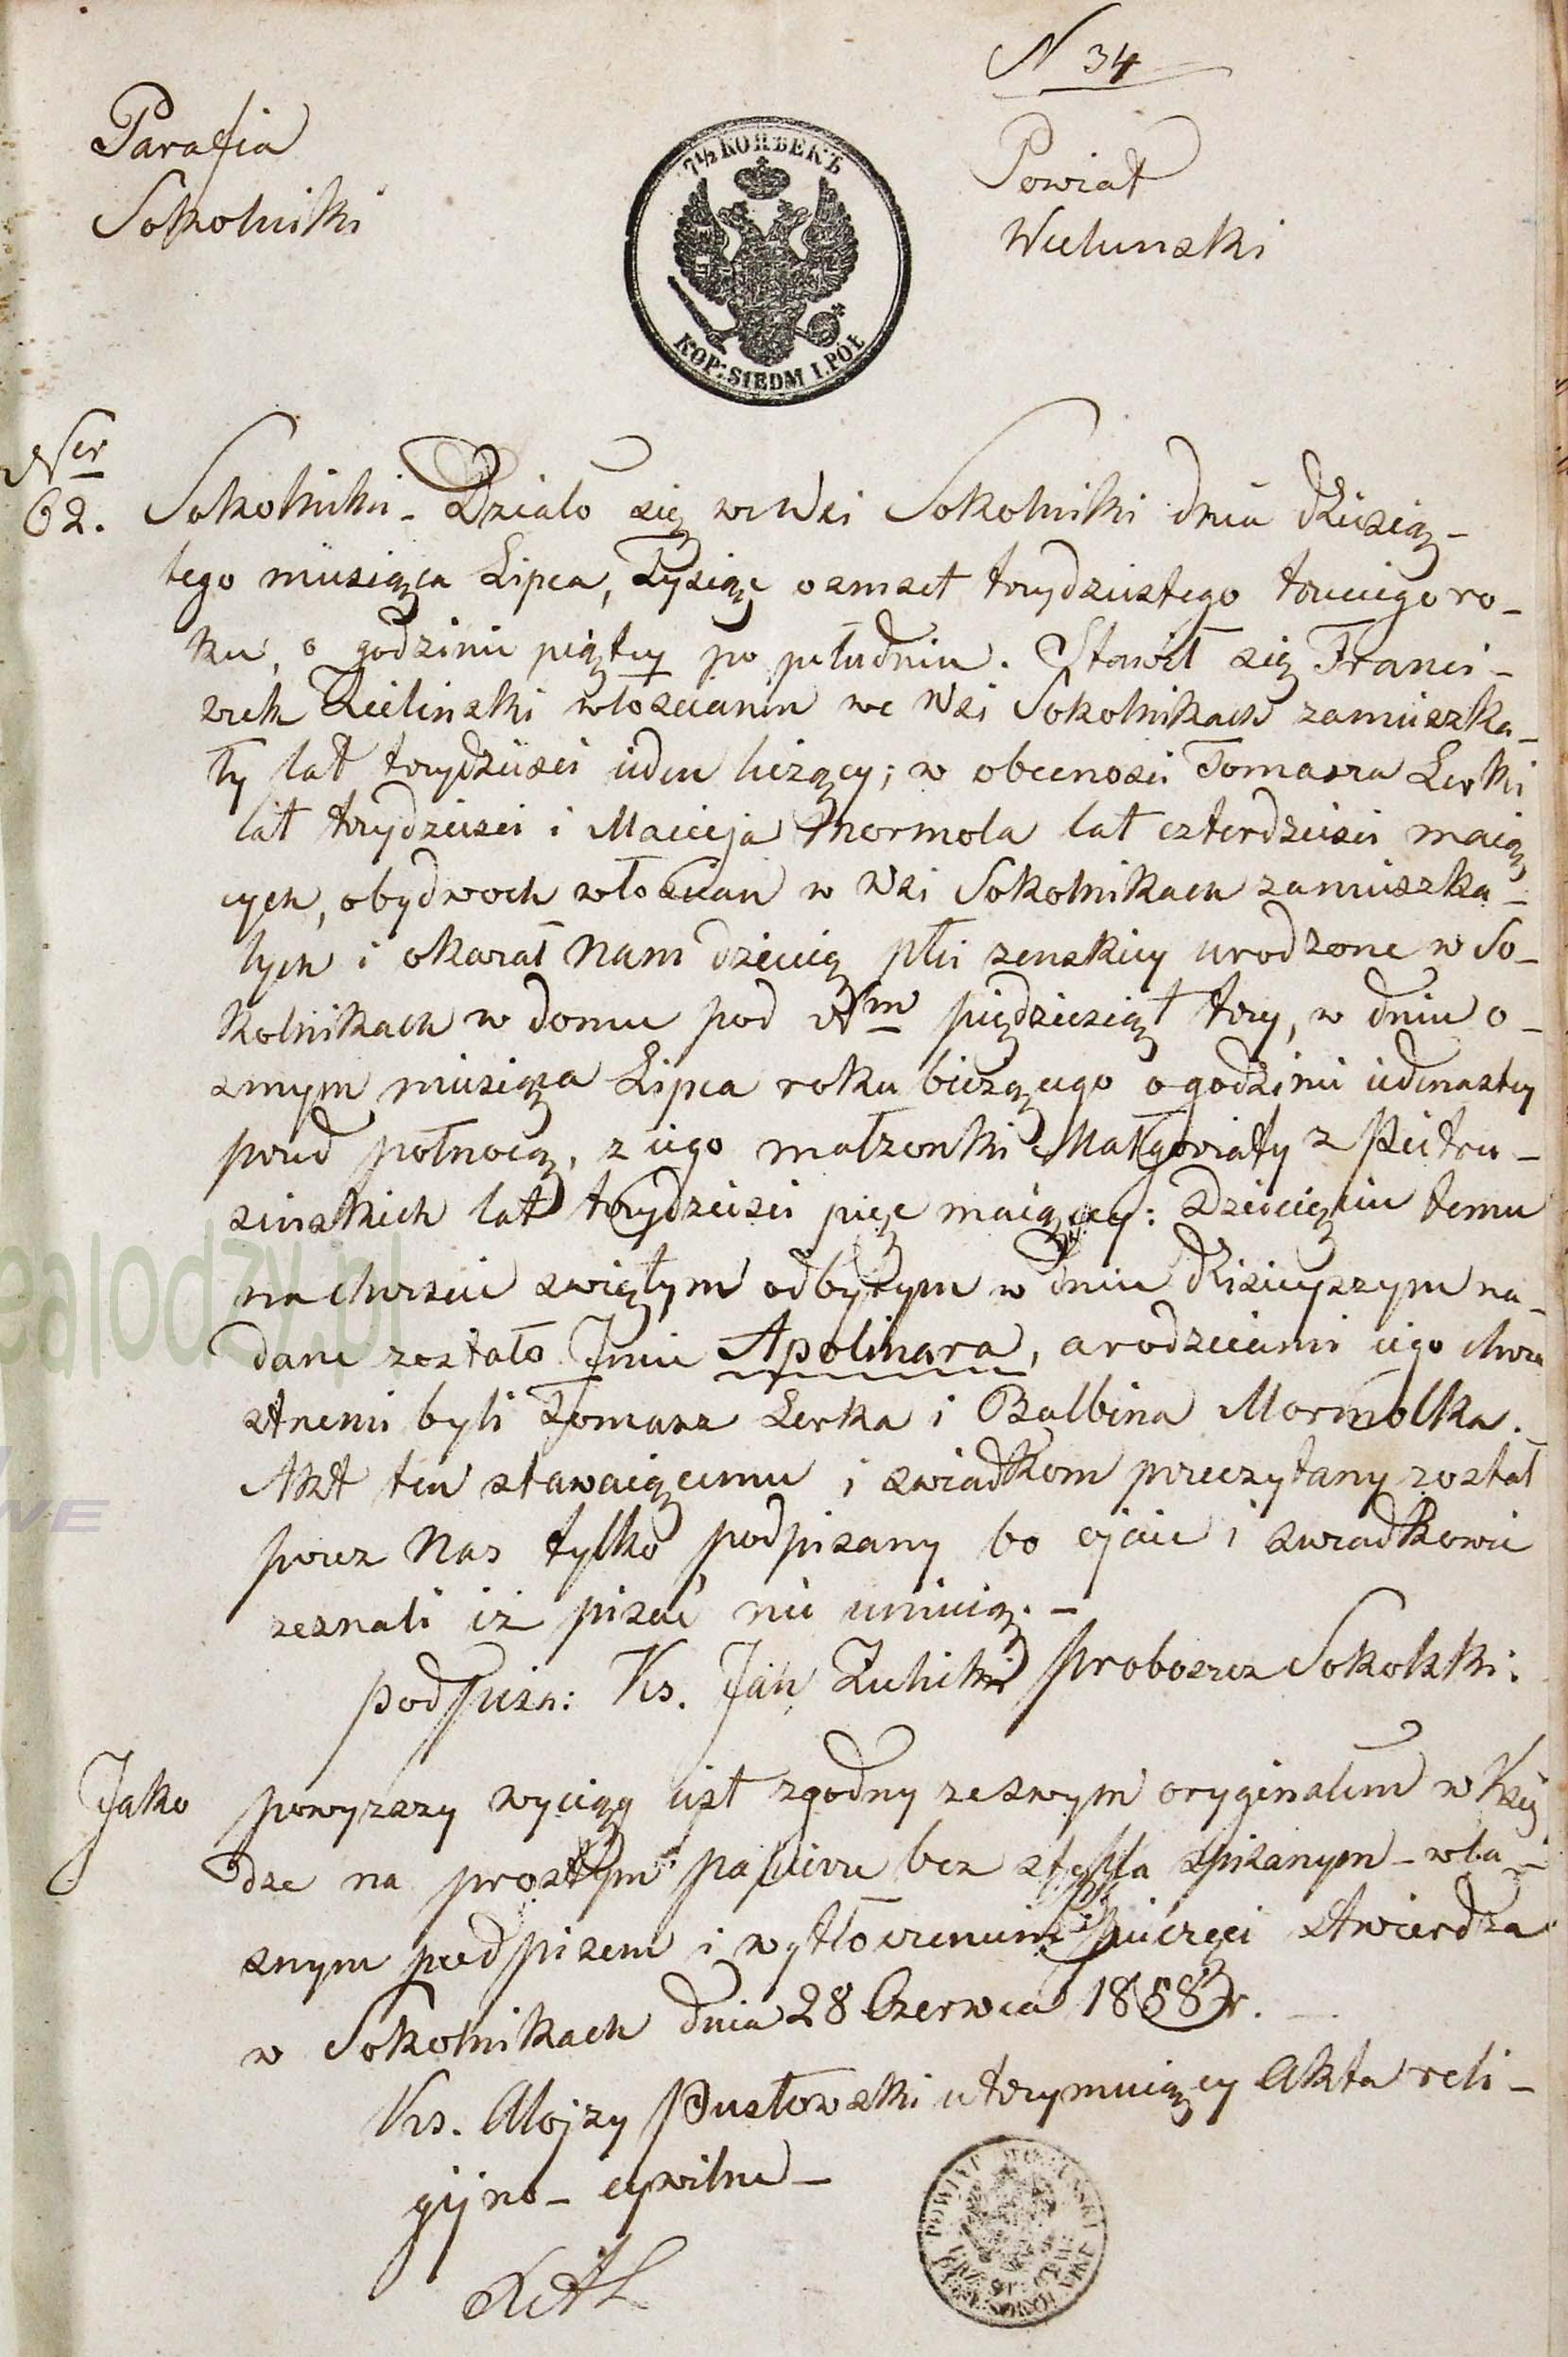 N 34
Parafia
Sokolniki
7½ КОПѢЕКЪ
KOP: SIEDM I PÓŁ
Powiat
Wielunski
Ner
62.
Sokolniki - Działo się we Wsi Sokolniki dnia dziesią-
tego miesiąca Lipca, Tysiąc osmset trzydziestego trzeciego ro-
ku, o godzinie piątey po południu. Stawił się Franci-
szek Zielinski włoscianin we Wsi Sokolnikach zamieszka-
ły lat trzydziesci ieden liczący; w obecnosci Tomasza Lerki
lat trzydziesci i Macieja Mormola lat czterdziesci maią
cych, obydwoch włoscian w Wsi Sokolnikach zamieszka-
łych i okazał Nam dziecię płci zenskiey urodzone w So-
kolnikach w domu pod Nm piędziesiąt trzy, w dniu o-
smym miesiąca Lipca roku bieżącego o godzinie iedenastey
przed połnocą, z iego małzonki Małgorzaty z Pietru-
sinskich lat trzydziesci pięc maiącey: Dziecięciu temu
na chrzcie swiętym odbytym w dniu dzisieyszym na-
dane zostało Imie Apolinara, a rodzicami iego chrze
stnemi byli Tomasz Lerka i Balbina Mormolka.-
Akt ten stawaiącemu i swiadkom przeczytany został
przez Nas tylko podpisany bo ojciec i swiadkowie
zeznali iż pisać nie umieią. -
podpisn: Ks. Jan proboszcz Sokolski:
Jako powyzszy wyciąg iest zgodny ze swym oryginałem w Xię
dze na prostym papierze bez stępla spisanym - wła-
snym podpisem i wytłoczeniem pieczęci stwierdza
w Sokolnikach dnia 28 Czerwca 1858 r. -
Ks. Alojzy Pustowski utrzymuiący Akta reli-
gijno - cywilne -